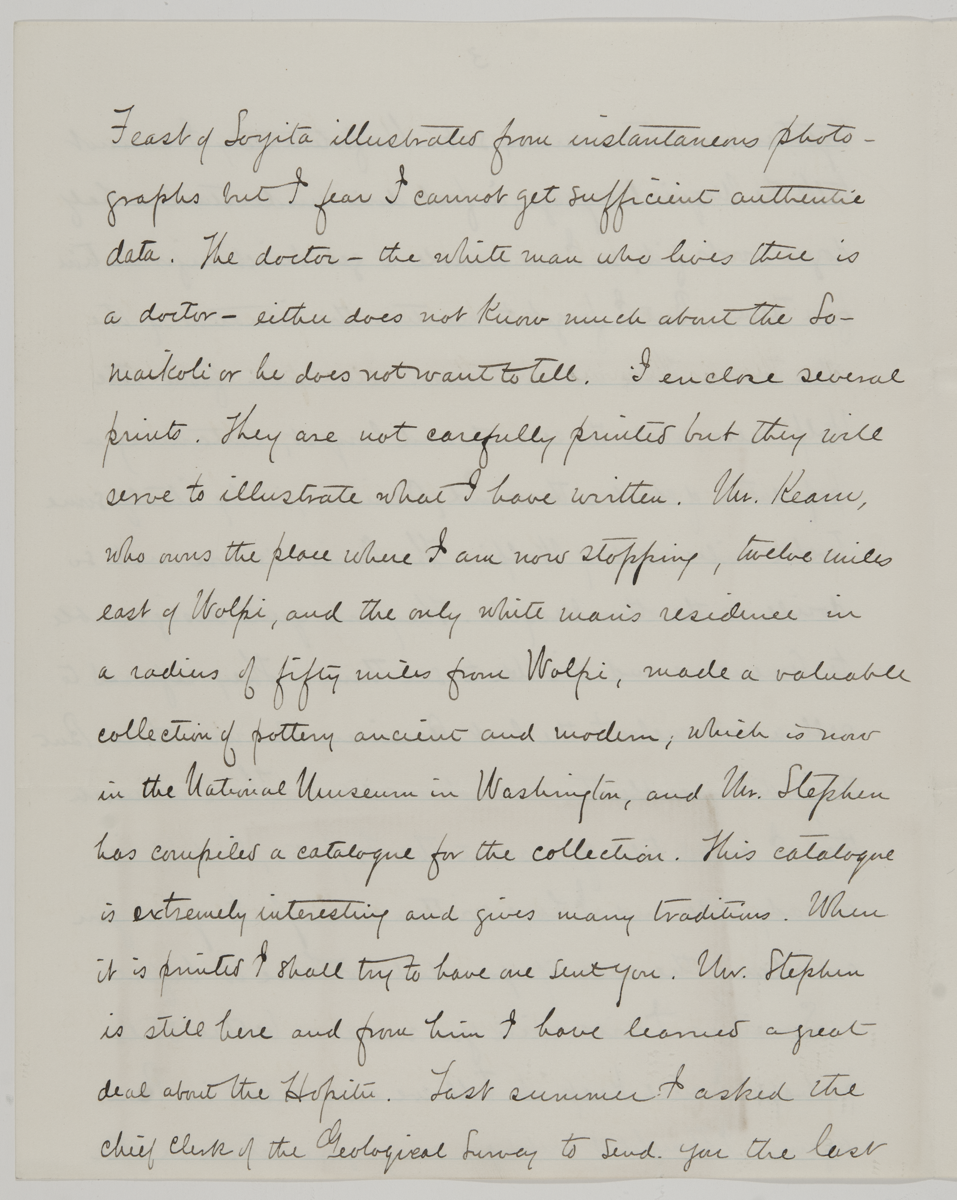 Feast of Soyita illustrated from instantaneous photo-
graphs but I fear I cannot get sufficient authentic
data. The doctor – the white man who lives there is
a doctor – either does not know much about the So-
maikoli or he does not want to tell. I enclose several
prints. They are not carefully printed but they will
serve to illustrate what I have written. Mr. Keam,
who owns the place where I am now stopping, twelve miles
east of Wolpi, and the only white man's residence in
a radius of fifty miles from Wolpi, made a valuable
collection of pottery ancient and modern, which is now
in the National Museum in Washington, and Mr. Stephen
has compiled a catalogue for the collection. This catalogue
is extremely interesting and gives many traditions. When
it is printed I shall try to have one sent you. Mr. Stephen
is still here and from him I have learned a great
deal about the Hopitu. Last summer I asked the
chief clerk of the Geological Survey to send. you the last